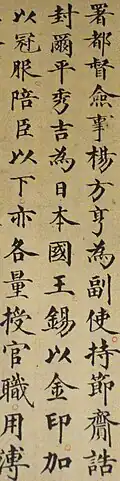 署都督僉事楊方亨為副使持節齎誥
封爾平秀吉為日本國王錫以金印加
以冠服陪臣以下亦各量授官職用溥